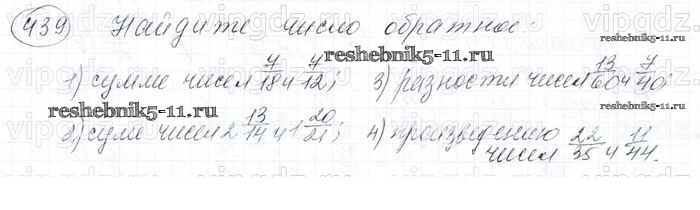 439) Найдите число обратное:
reshebnik5-11.ru
1) сумме чисел 7/18 и 7/12; 3) разности чисел 13/60 и 7/40;
reshebnik5-11.ru
2) сумме чисел 2 13/14 и 1 20/21; 4) произведению
чисел 22/35 и 11/44.
reshebnik5-11.ru